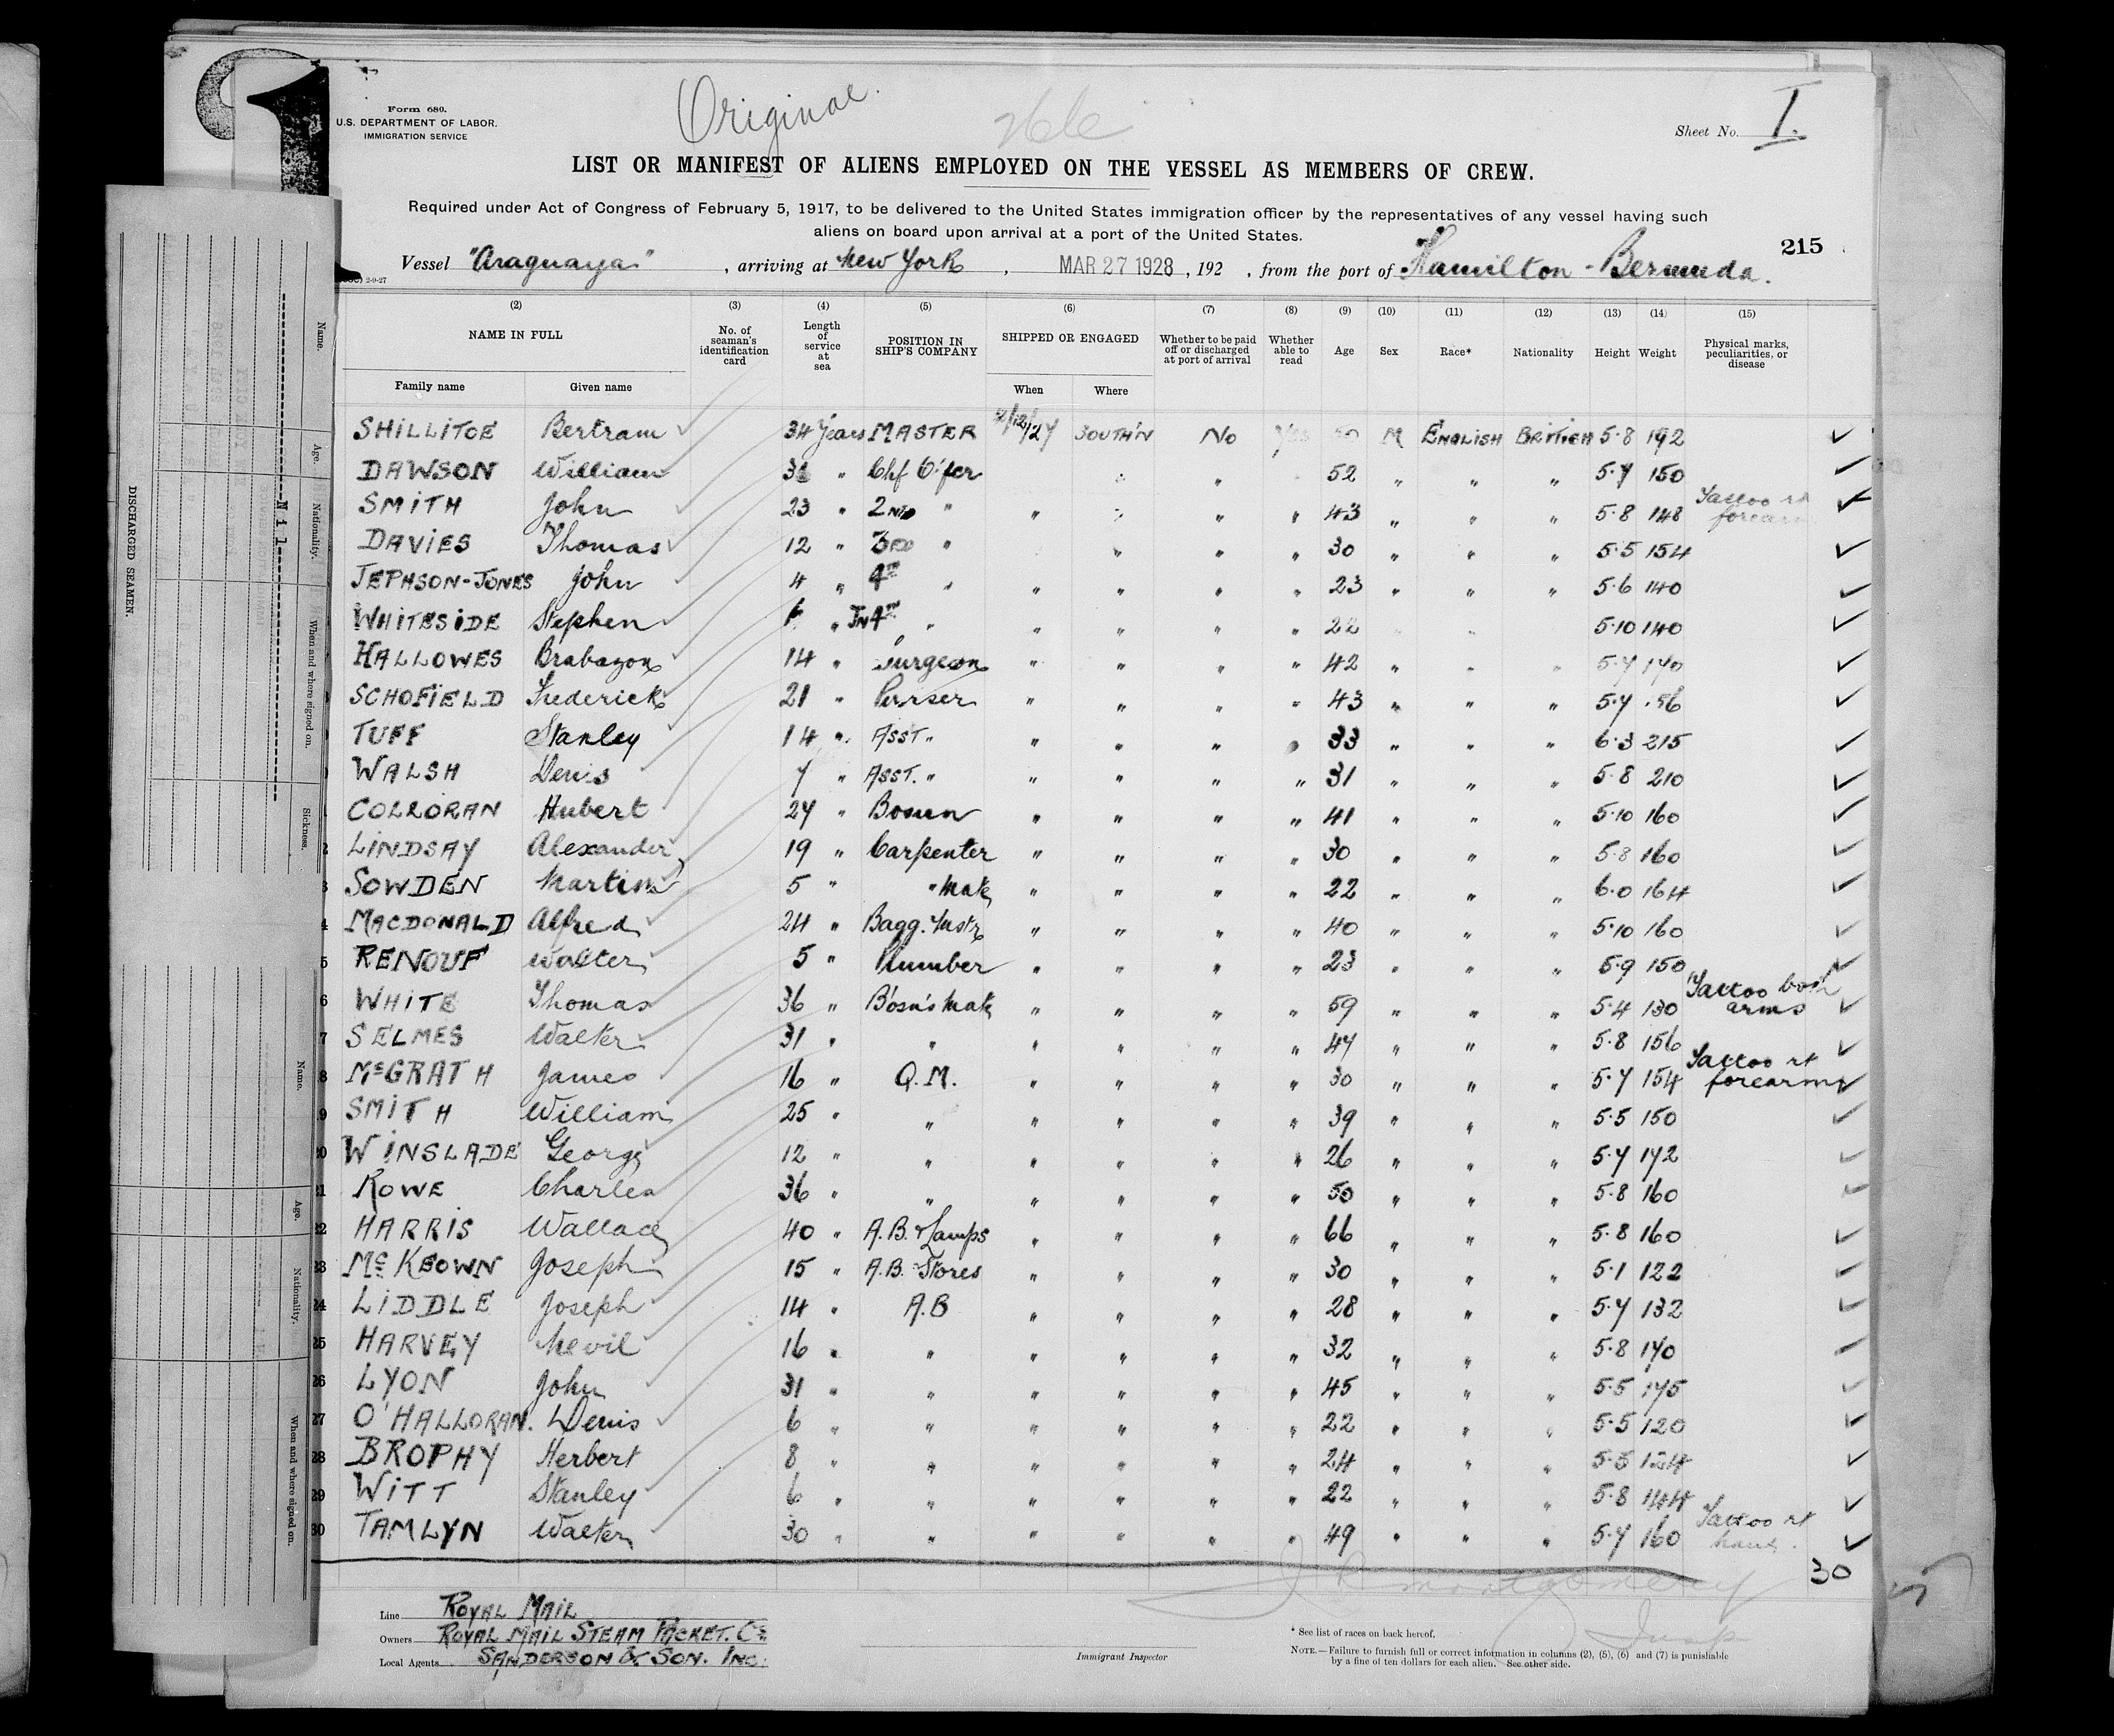 Original
Form 680.
U.S. DEPARTMENT OF LABOR.
IMMIGRATION SERVICE
Sheet No. I.
LIST OR MANIFEST OF ALIENS EMPLOYED ON THE VESSEL AS MEMBERS OF CREW.
Required under Act of Congress of February 5, 1917, to be delivered to the United States immigration officer by the representatives of any vessel having such
aliens on board upon arrival at a port of the United States.
215
Vessel "Araguaya", arriving at New York, MAR 27 1928, 192 , from the port of Hamilton - Bermuda.
2-9-27
(2) (3) (4) (5) (6) (7) (8) (9) (10) (11) (12) (13) (14) (15)
NAME IN FULL No. of seaman's identification card Length of service at sea POSITION IN SHIP'S COMPANY SHIPPED OR ENGAGED Whether to be paid off or discharged at port of arrival Whether able to read Age Sex Race* Nationality Height Weight Physical marks, peculiarities, or disease
Family name Given name When Where
SHILLITOE Bertram 34 Years MASTER SOUTH'N No Yes 50 M ENGLISH BRITISH 5·8 192
DAWSON William " Chf O'fer " 52 " " " 5·7 150
SMITH John 23 " 2ND " " " " " 43 " " " 5·8 148 Tattoo rt forearm
DAVIES Thomas 12 " 3RD " " " " 30 " " " 5·5 154
JEPHSON-JONES John 4 " 4TH " " " " " 23 " " " 5·6 140
WHITESIDE Stephen " JN 4TH " " " " " 22 " " 5·10 140
HALLOWES Brabazon 14 " Surgeon " " " " 42 " " " 5·7 170
SCHOFIELD Frederick 21 " Purser " " " " 43 " " " 5·7 156
TUFF Stanley 14 " ASST. " " " " " 33 " " " 6·3 215
WALSH Denis 7 " ASST. " " " " " 31 " " " 5·8 210
COLLORAN Hubert 27 " Bosun " " " " 41 " " " 5·10 160
LINDSAY Alexander 19 " Carpenter " " " " 30 " " " 5·8 160
SOWDEN Martin 5 " " Mate " " " " 22 " " " 6·0 164
MACDONALD Alfred 24 " Bagg. Mstr " " " " 40 " " " 5·10 160
RENOUF Walter 5 " Plumber " " " " 23 " " " 5·9 150
WHITE Thomas 36 " Bosn's Mate " " " " 59 " " " 5·4 130 Tattoo both arms
SELMES Walter 31 " " " " " " 47 " " " 5·8 156
McGRATH James 16 " Q.M. " " " " 30 " " " 5·7 154 Tattoo rt forearm
SMITH William 25 " " " " " " 39 " " " 5·5 150
WINSLADE George 12 " " " " " " 26 " " " 5·7 172
ROWE Charles 36 " " " " " " 50 " " " 5·8 160
HARRIS Wallace 40 " A.B. Lamps " " " " 66 " " " 5·8 160
McKEOWN Joseph 15 " A.B. Stores " " " " 30 " " " 5·1 122
LIDDLE Joseph 14 " A.B " " " " 28 " " " 5·7 132
HARVEY Nevil 16 " " " " " " 32 " " " 5·8 170
LYON John 31 " " " " " " 45 " " " 5·5 175
O'HALLORAN. Denis 6 " " " " " " 22 " " " 5·5 120
BROPHY Herbert 8 " " " " " " 24 " " " 5·5 124
WITT Stanley 6 " " " " " " 22 " " " 5·8 144
TAMLYN Walter 30 " " " " " " 49 " " " 5·7 160 Tattoo rt hand.
30
Line ROYAL MAIL
Owners ROYAL MAIL STEAM PACKET. Co.
Local Agents SANDERSON & SON. INC.
Montgomery
Insp
Immigrant Inspector
* See list of races on back hereof.
NOTE.—Failure to furnish full or correct information in columns (2), (5), (6) and (7) is punishable
by a fine of ten dollars for each alien. See other side.
DISCHARGED SEAMEN.
Name.
Age.
Nationality.
When and where signed on.
Sickness.
Nil
Name.
Age.
Nationality.
When and where signed on.